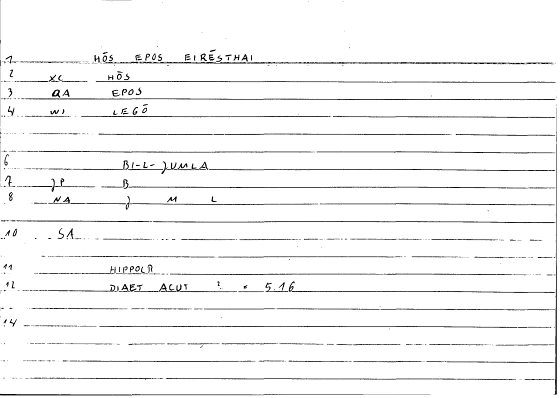 1 HŌS EPOS EIRĒSTHAI
2 XC HŌS
3 QA EPOS
4 WI LEGŌ
6 BI-L-ǦUMLA
7 ǦP B
8 NA Ǧ M L
10 SA
11 HIPPOCR
12 DIAET ACUT 5.16
14